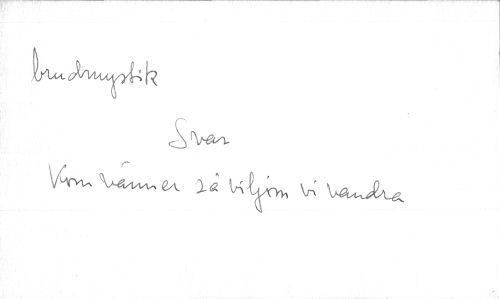 brudmystik
Svar
Kom vänner så viljom vi vandra